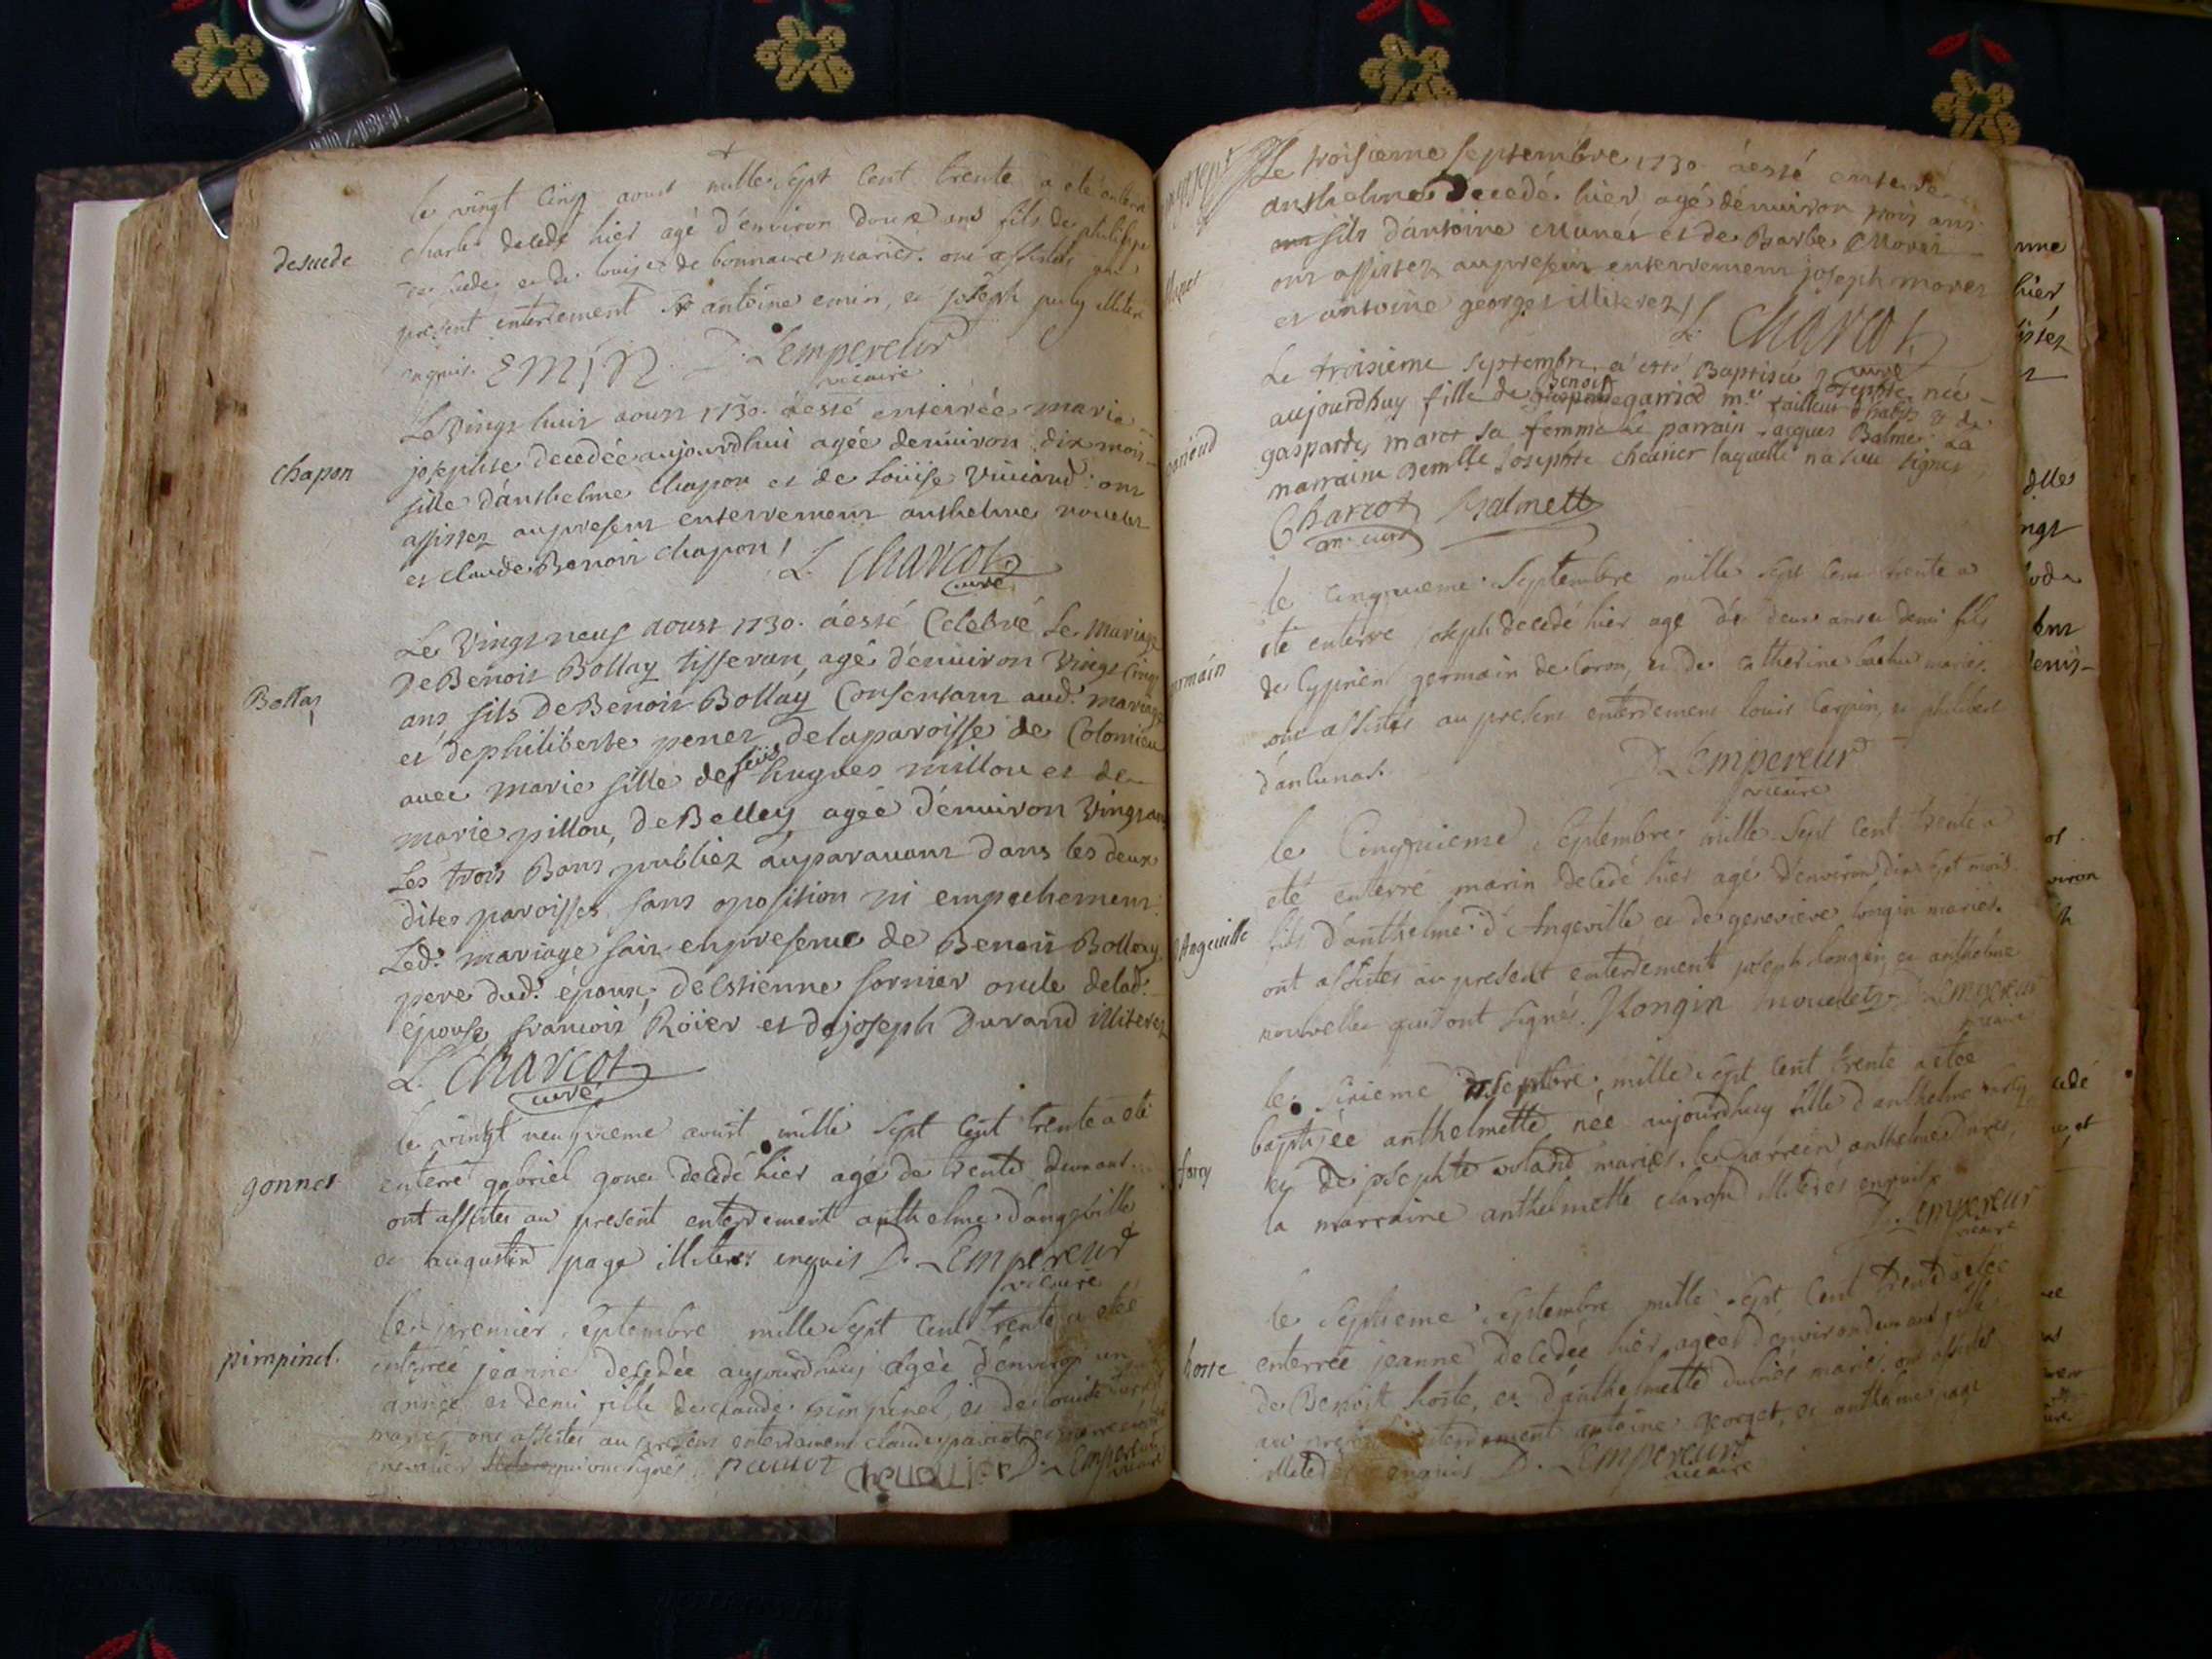 le vingt cinq aoust mille sept cent trente a eté enterré
charle decedé hier agé d'environ douze ans fils de philippe
desuede
de suede et de louise de bonnaire mariés. ont assistés au
present enterrement antoine emin, et joseph
enquis. EMIN D. Lempereur
vicaire
Le Vingt huit aoust 1730. à esté enterrée marie
chapon
josephte decedée aujourdhui agée denuiron dix mois
fille d'anthelme Chapon et de Loüise Viuiand: ont
assistez au present enterrement anthelme nouelet
et claude Benoit chapon!
L. Charcot
curé
Le Vingt neuf aoust 1730. à esté Celebré le Mariage
De Benoit Bollay tisseran, agé d'enuiron Vingt Cinq
Bollay
ans fils De Benoit Bollay Consentant aud. mariage
et de philiberte penet de la paroisse de Colomieu
auec marie fille de feu hugues millou et de
marie pillou, De Belley agée d'enuiron Vingt ans
Les trois Bans publiez auparauant dans les deux
dites paroisses sans oposition ni empechement:
Led. mariage fait en presence de Benoit Bollay
pere dud. époux, d'Estienne fornier oncle de lad.
épouse, francois Roïer et de joseph Durand illiterez
L. Charcot
curé
le vingt neufvieme aoust mille sept cent trente a eté
gonnet
enterré gabriel gonet decedé hier agé de trente deux ans
ont assistes au present enterrement anthelme d'angeville
et augustin page illiterez enquis D. Lempereur
vicaire
le premier septembre mille sept cent trente a eteé
pimpinel.
enterreé jeanne decedée aujourdhuy agée d'environ un
année et demi fille de claude pimpinel, et de louise
mariés ont assistes au present enterrement claude et
chevalier qui ont signés. chevalier D. Lempereur
vicaire
Le troisieme septembre 1730. à esté enterré
anthelme Decedé hier agé d'enuiron trois ans
fils d'antoine Munet et de Barbe Moret
Munet
ont assistez au present enterrement joseph moret
et antoine georges illiterez!
L. Charcot
curé
Le troisieme septembre a esté Baptisée josephte née
aujourdhuy fille de Benoit garriod m.e tailleur d'habits & de
garriod
gasparde marot sa femme Le parrain Jacques Balme La
marraine Demlle Josephte chevrier laquelle na sceu signer
Charcot Balmett
le cinquieme septembre mille sept cent trente a
eté enterré joseph decedé hier agé de deux ans et demi fils
germain
de Cyprien germain de Coron, et de catherine mariés.
ont assistés au present enterrement louis Carpin, et philibert
D Lempereur
vicaire
le Cinquieme septembre mille sept cent trente a
eté enterré marin decedé hier agé d'environ dix sept mois
d'Angeville
fils d'anthelme d'Angeville et de genevieve longin mariés.
ont assistés au present enterrement joseph longin, et anthelme
nouvellet qui ont signés. J longin nouelet D. Lempereur
vicaire
le sixieme septbre mille sept cent trente a eteé
baptiseé anthelmette née aujourdhuy fille d'anthelme
farcy
et de josephte mariés. le parrein anthelme
la marraine anthelmette illiterés enquis
D. Lempereur
vicaire
le septieme septembre mille sept cent trente a eteé
hoste
enterreé jeanne decedée hier agée d'environ deux ans fille
de Benoist hoste, et d'anthelmette mariés. ont assistés
au present enterrement antoine georget, et anthelme page
enquis D. Lempereur
vicaire